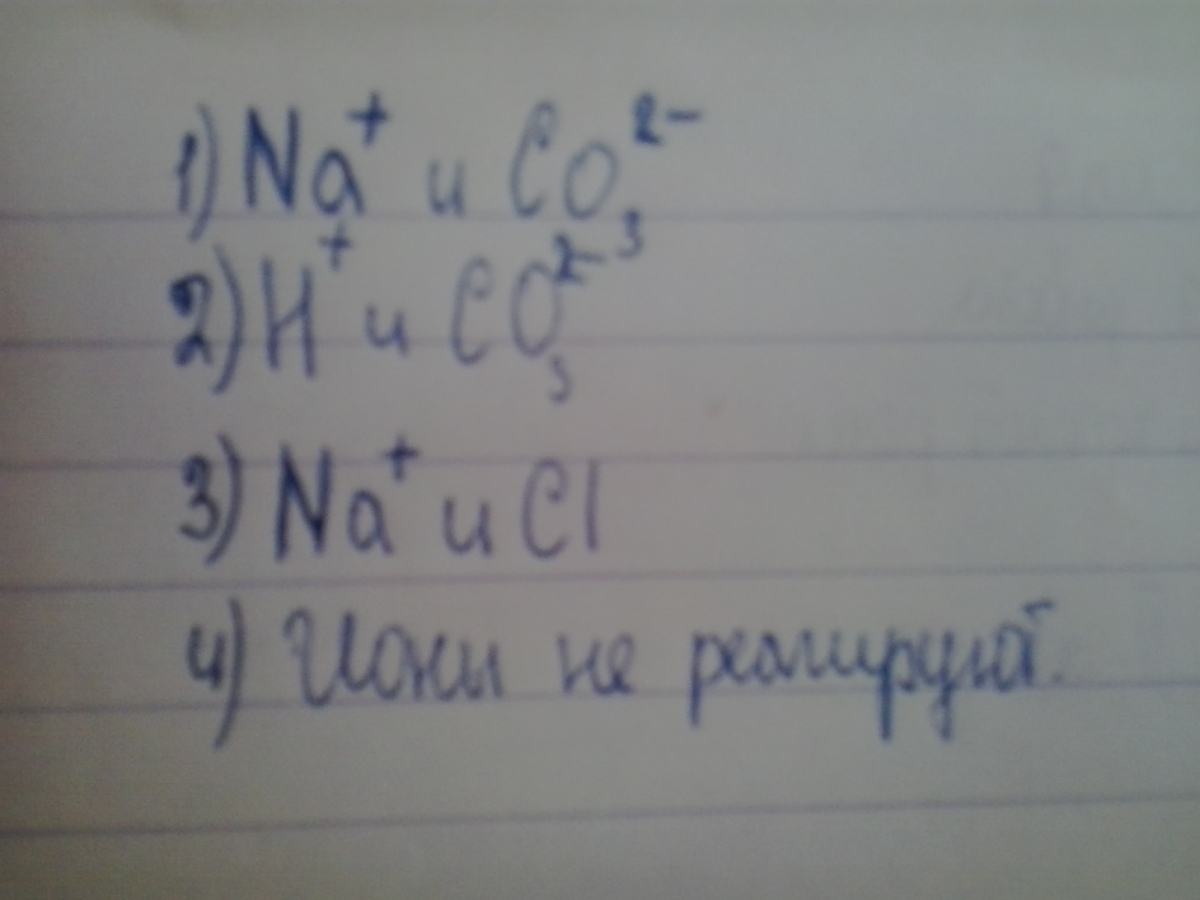 1) Na⁺ и CO₃²⁻
2) H⁺ и CO₃²⁻
3) Na⁺ и Cl
4) Ионы не реагируют.